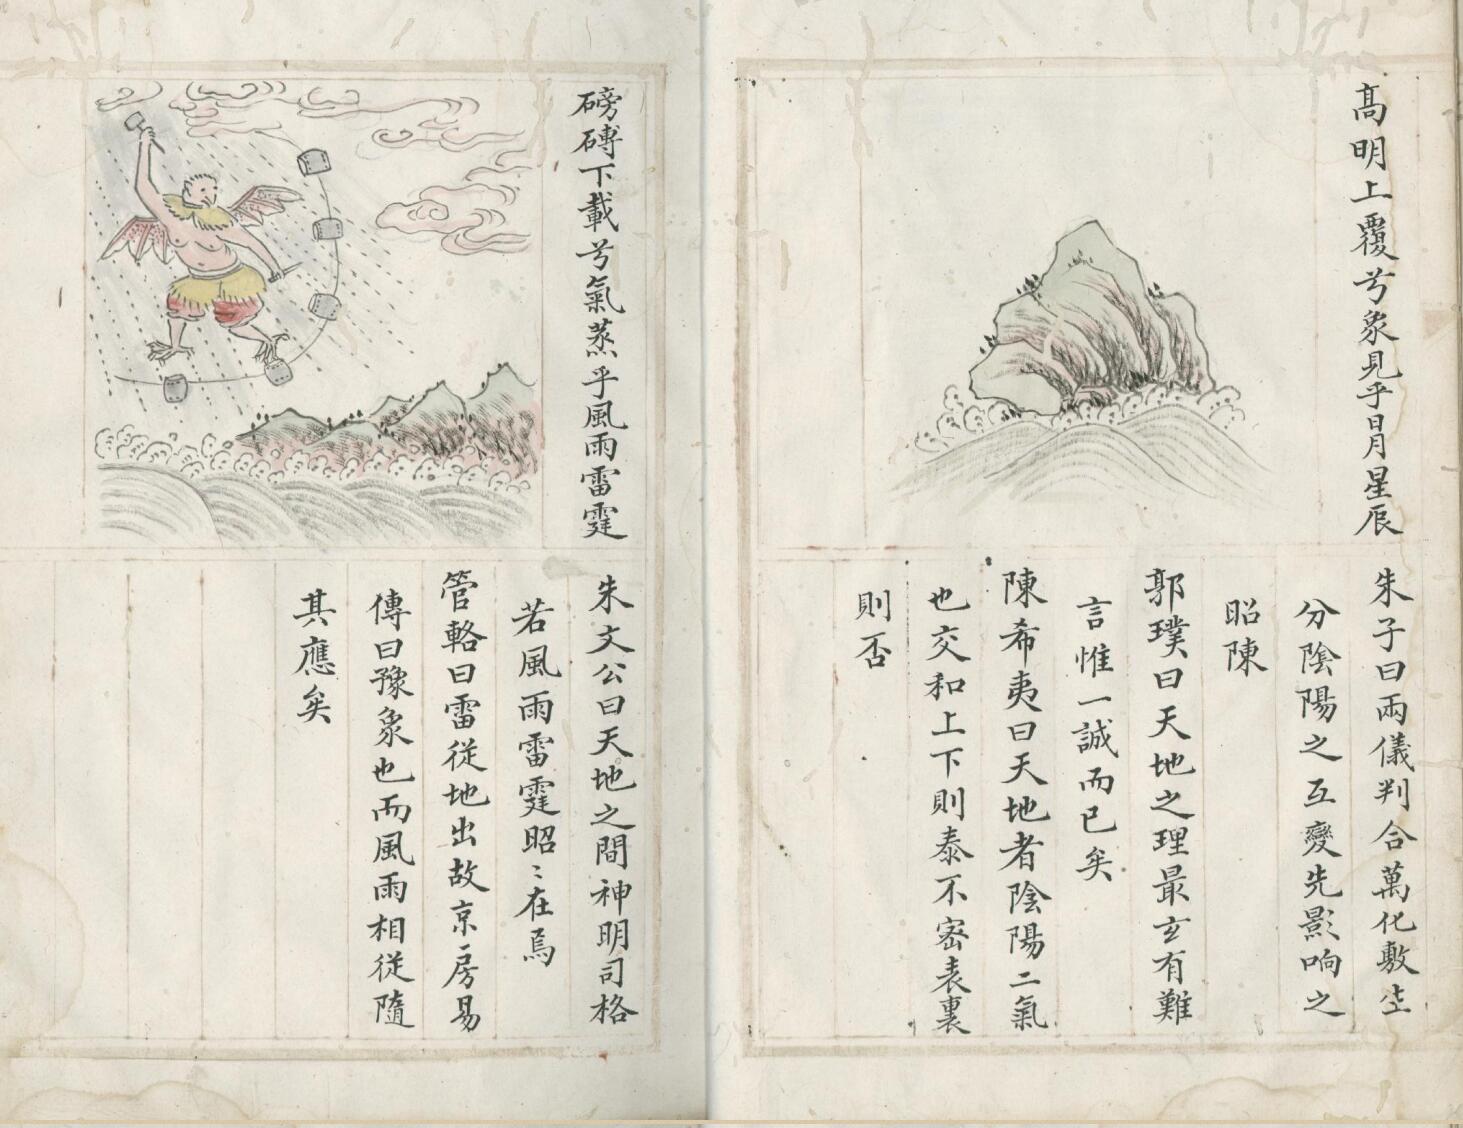 高明上覆兮象見乎日月星辰
朱子曰兩儀判合萬化敷
分陰陽之互變先影响之
昭陳
郭璞曰天地之理最玄有難
言惟一誠而已矣
陳希夷曰天地者陰陽二氣
也交和上下則泰不密表裏
則否
磅礴下載兮氣蒸乎風雨雷霆
朱文公曰天地之間神明司格
若風雨雷霆昭〻在焉
管輅曰雷從地出故京房易
傳曰豫象也而風雨相從隨
其應矣